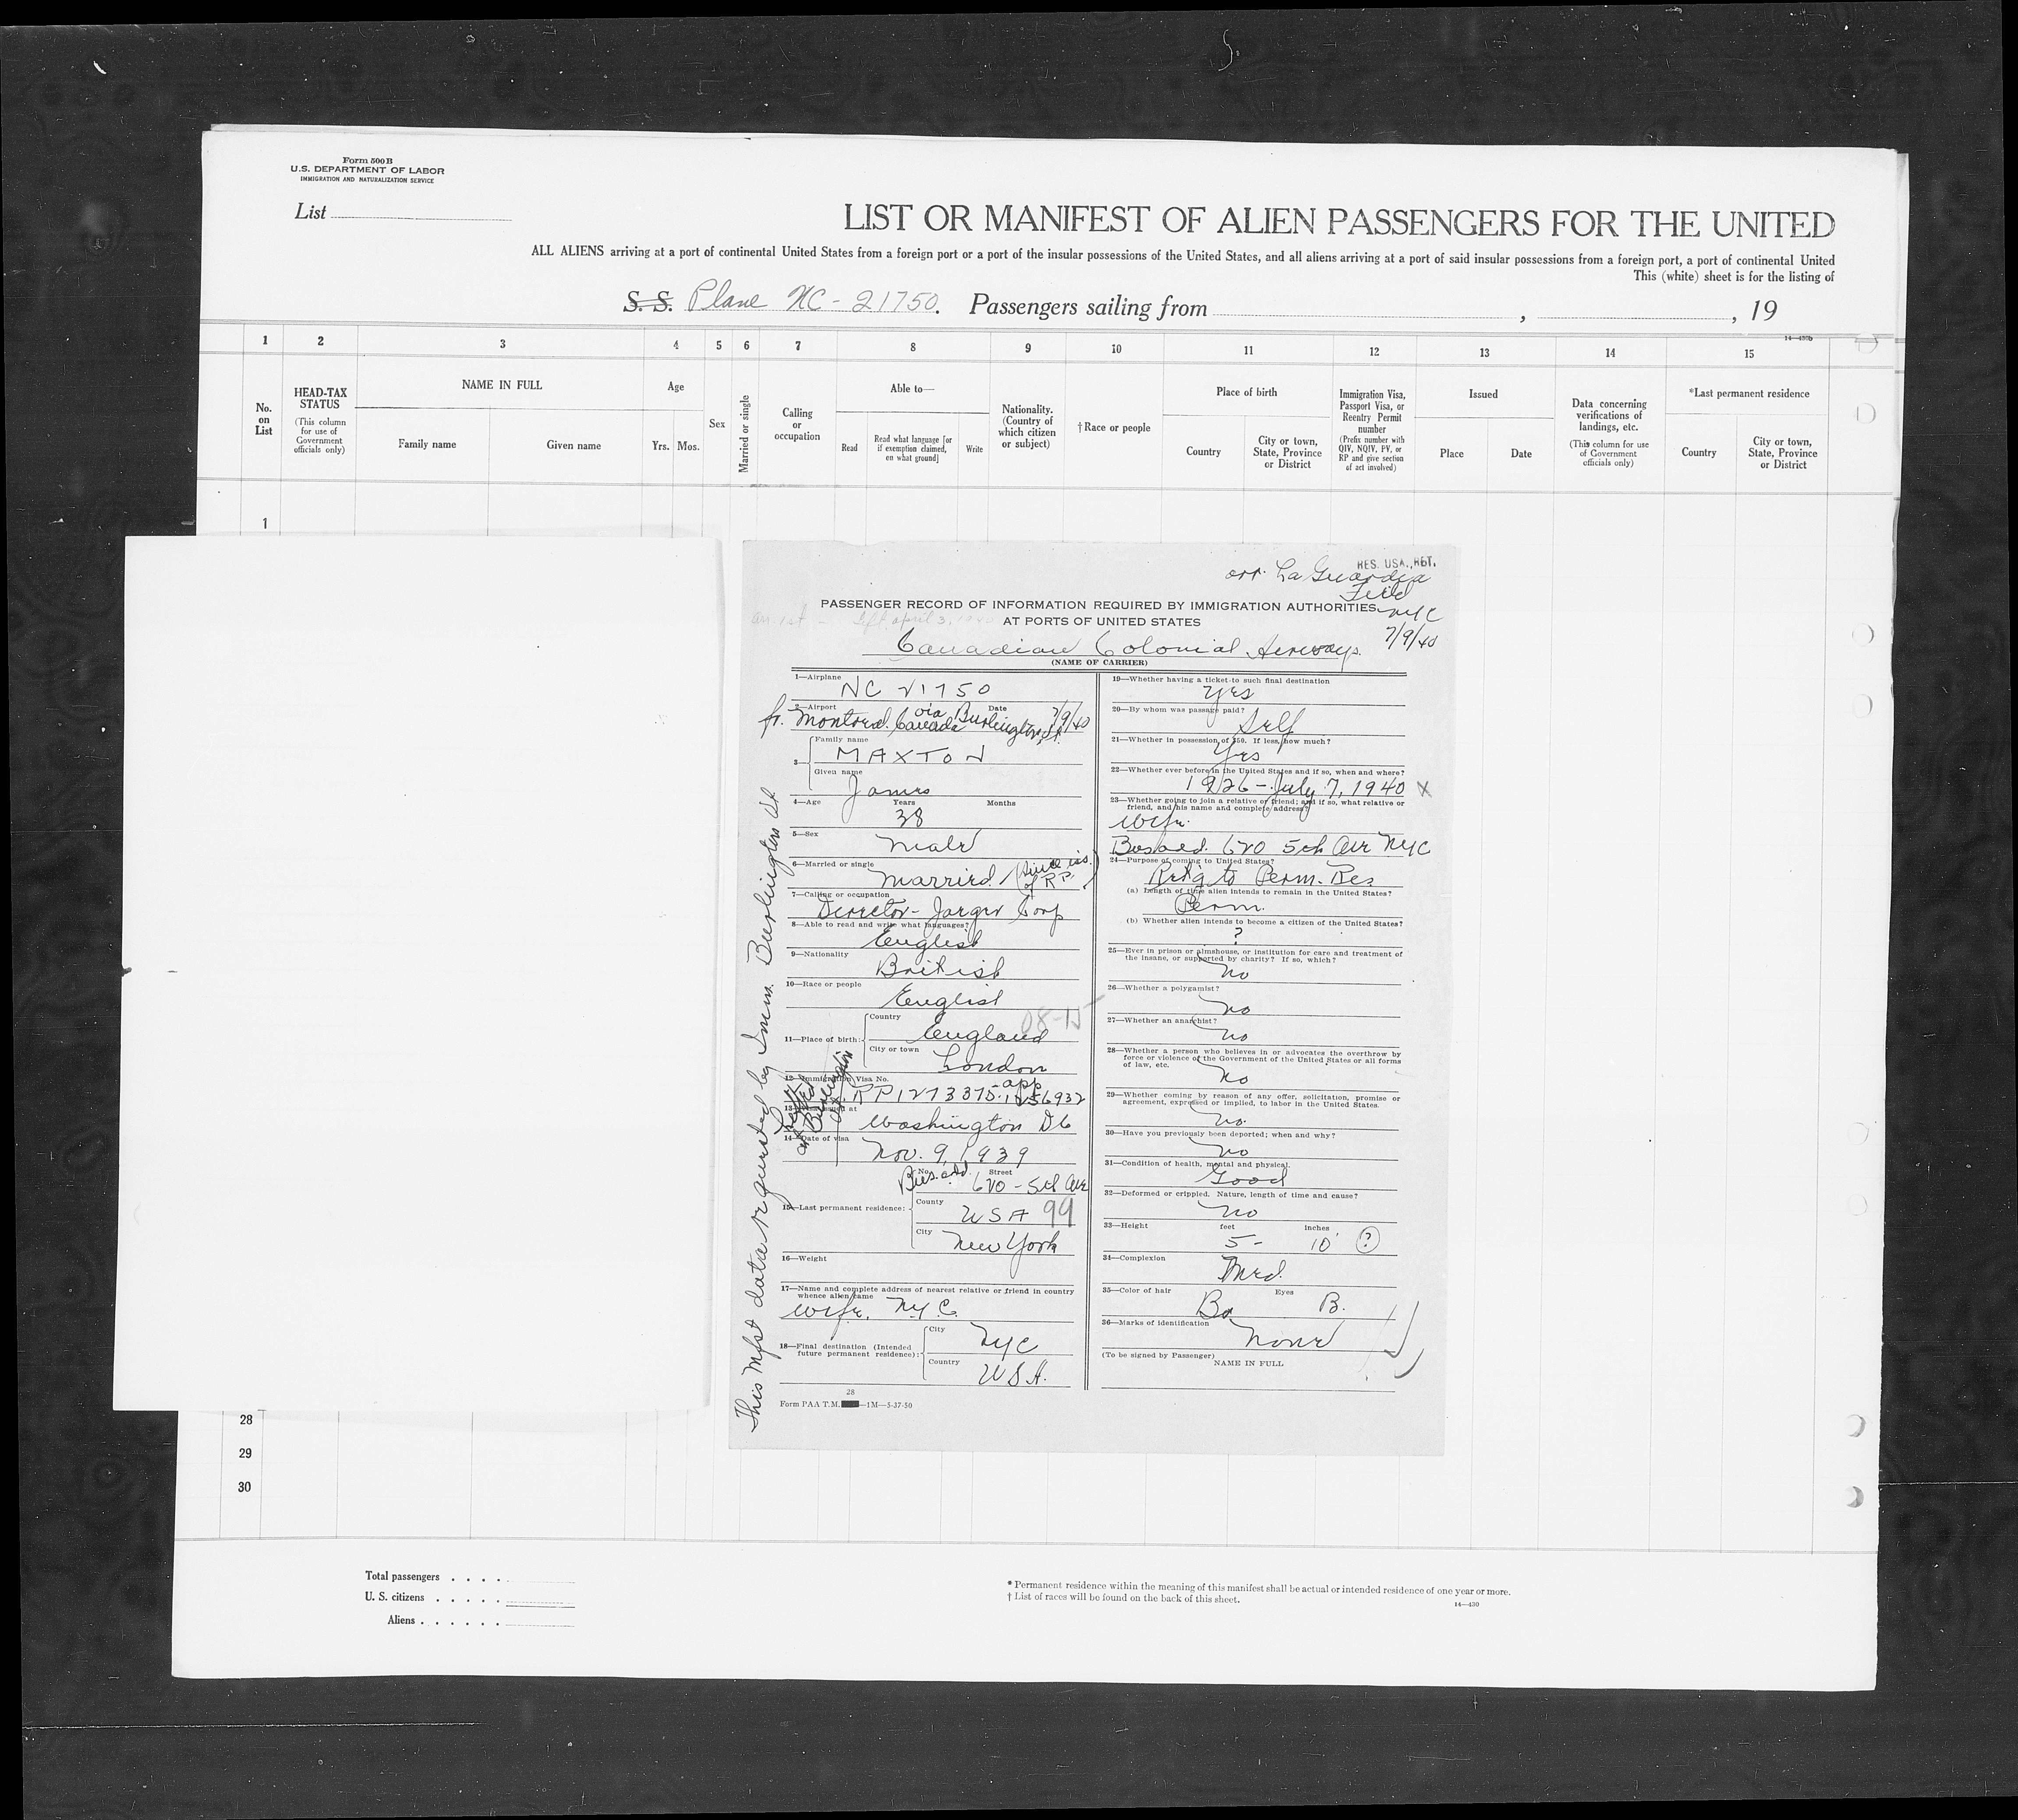 Form 500 B
U.S. DEPARTMENT OF LABOR
IMMIGRATION AND NATURALIZATION SERVICE
List
LIST OR MANIFEST OF ALIEN PASSENGERS FOR THE UNITED
ALL ALIENS arriving at a port of continental United States from a foreign port or a port of the insular possessions of the United States, and all aliens arriving at a port of said insular possessions from a foreign port, a port of continental United
This (white) sheet is for the listing of
S. S. Plane NC-21750. Passengers sailing from , , 19
14—430b
1 2 3 4 5 6 7 8 9 10 11 12 13 14 15
No. on List
HEAD-TAX STATUS
(This column for use of Government officials only)
NAME IN FULL
Family name
Given name
Age
Yrs. Mos.
Sex
Married or single
Calling or occupation
Able to—
Read
Read what language [or if exemption claimed, on what ground]
Write
Nationality. (Country of which citizen or subject)
†Race or people
Place of birth
Country
City or town, State, Province or District
Immigration Visa, Passport Visa, or Reentry Permit number
(Prefix number with QIV, NQIV, PV, or RP and give section of act involved)
Issued
Place
Date
Data concerning verifications of landings, etc.
(This column for use of Government officials only)
*Last permanent residence
Country
City or town, State, Province or District
1
RES. USA., RET.
arr. La Guardia
Field
NYC
7/9/40
PASSENGER RECORD OF INFORMATION REQUIRED BY IMMIGRATION AUTHORITIES
AT PORTS OF UNITED STATES
left april 3,
Canadian Colonial Airways
(NAME OF CARRIER)
1—Airplane
NC 21750
2—Airport Date
fr. Montreal. Canada via Burlington, Vt. 7/9/40
3
Family name
MAXTON
Given name
James
4—Age Years Months
38
5—Sex
Male
6—Married or single
Married (since iss. of RP.)
7—Calling or occupation
Director - Jaeger Corp
8—Able to read and write what languages?
English
9—Nationality
British
10—Race or people
English
11—Place of birth:
Country
England
08-15
City or town
London
12—Immigration Visa No.
RP 1273375. app 1256932
13—Visa issued at
Washington DC
14—Date of visa
Nov. 9, 1939
at Burlington
15—Last permanent residence:
No. Street
Bus. add. 620 - 5th Ave
County
USA 99
City
New York
16—Weight
17—Name and complete address of nearest relative or friend in country whence alien came
wife, NYC
18—Final destination (Intended future permanent residence):
City
NYC
Country
USA.
28
Form PAA T.M. —1M—5-37-50
This Mfst data requested by Imm. Burlington Vt
19—Whether having a ticket to such final destination
Yes
20—By whom was passage paid?
Self
21—Whether in possession of $50. If less, how much?
Yes
22—Whether ever before in the United States and if so, when and where?
1926 - July 7, 1940 X
23—Whether going to join a relative or friend; and if so, what relative or friend, and his name and complete address?
Wife.
Bus add. 620 5th Ave NYC
24—Purpose of coming to United States?
Retg to Perm. Res
(a) Length of time alien intends to remain in the United States?
Perm.
(b) Whether alien intends to become a citizen of the United States?
?
25—Ever in prison or almshouse, or institution for care and treatment of the insane, or supported by charity? If so, which?
No
26—Whether a polygamist?
No
27—Whether an anarchist?
No
28—Whether a person who believes in or advocates the overthrow by force or violence of the Government of the United States or all forms of law, etc.
No
29—Whether coming by reason of any offer, solicitation, promise or agreement, expressed or implied, to labor in the United States.
No
30—Have you previously been deported; when and why?
No
31—Condition of health, mental and physical.
Good
32—Deformed or crippled. Nature, length of time and cause?
No
33—Height feet inches
5 - 10 ?
34—Complexion
Med.
35—Color of hair Eyes
Br. B.
36—Marks of identification
None
(To be signed by Passenger)
NAME IN FULL
28
29
30
Total passengers
U. S. citizens
Aliens
* Permanent residence within the meaning of this manifest shall be actual or intended residence of one year or more.
† List of races will be found on the back of this sheet.
14—430